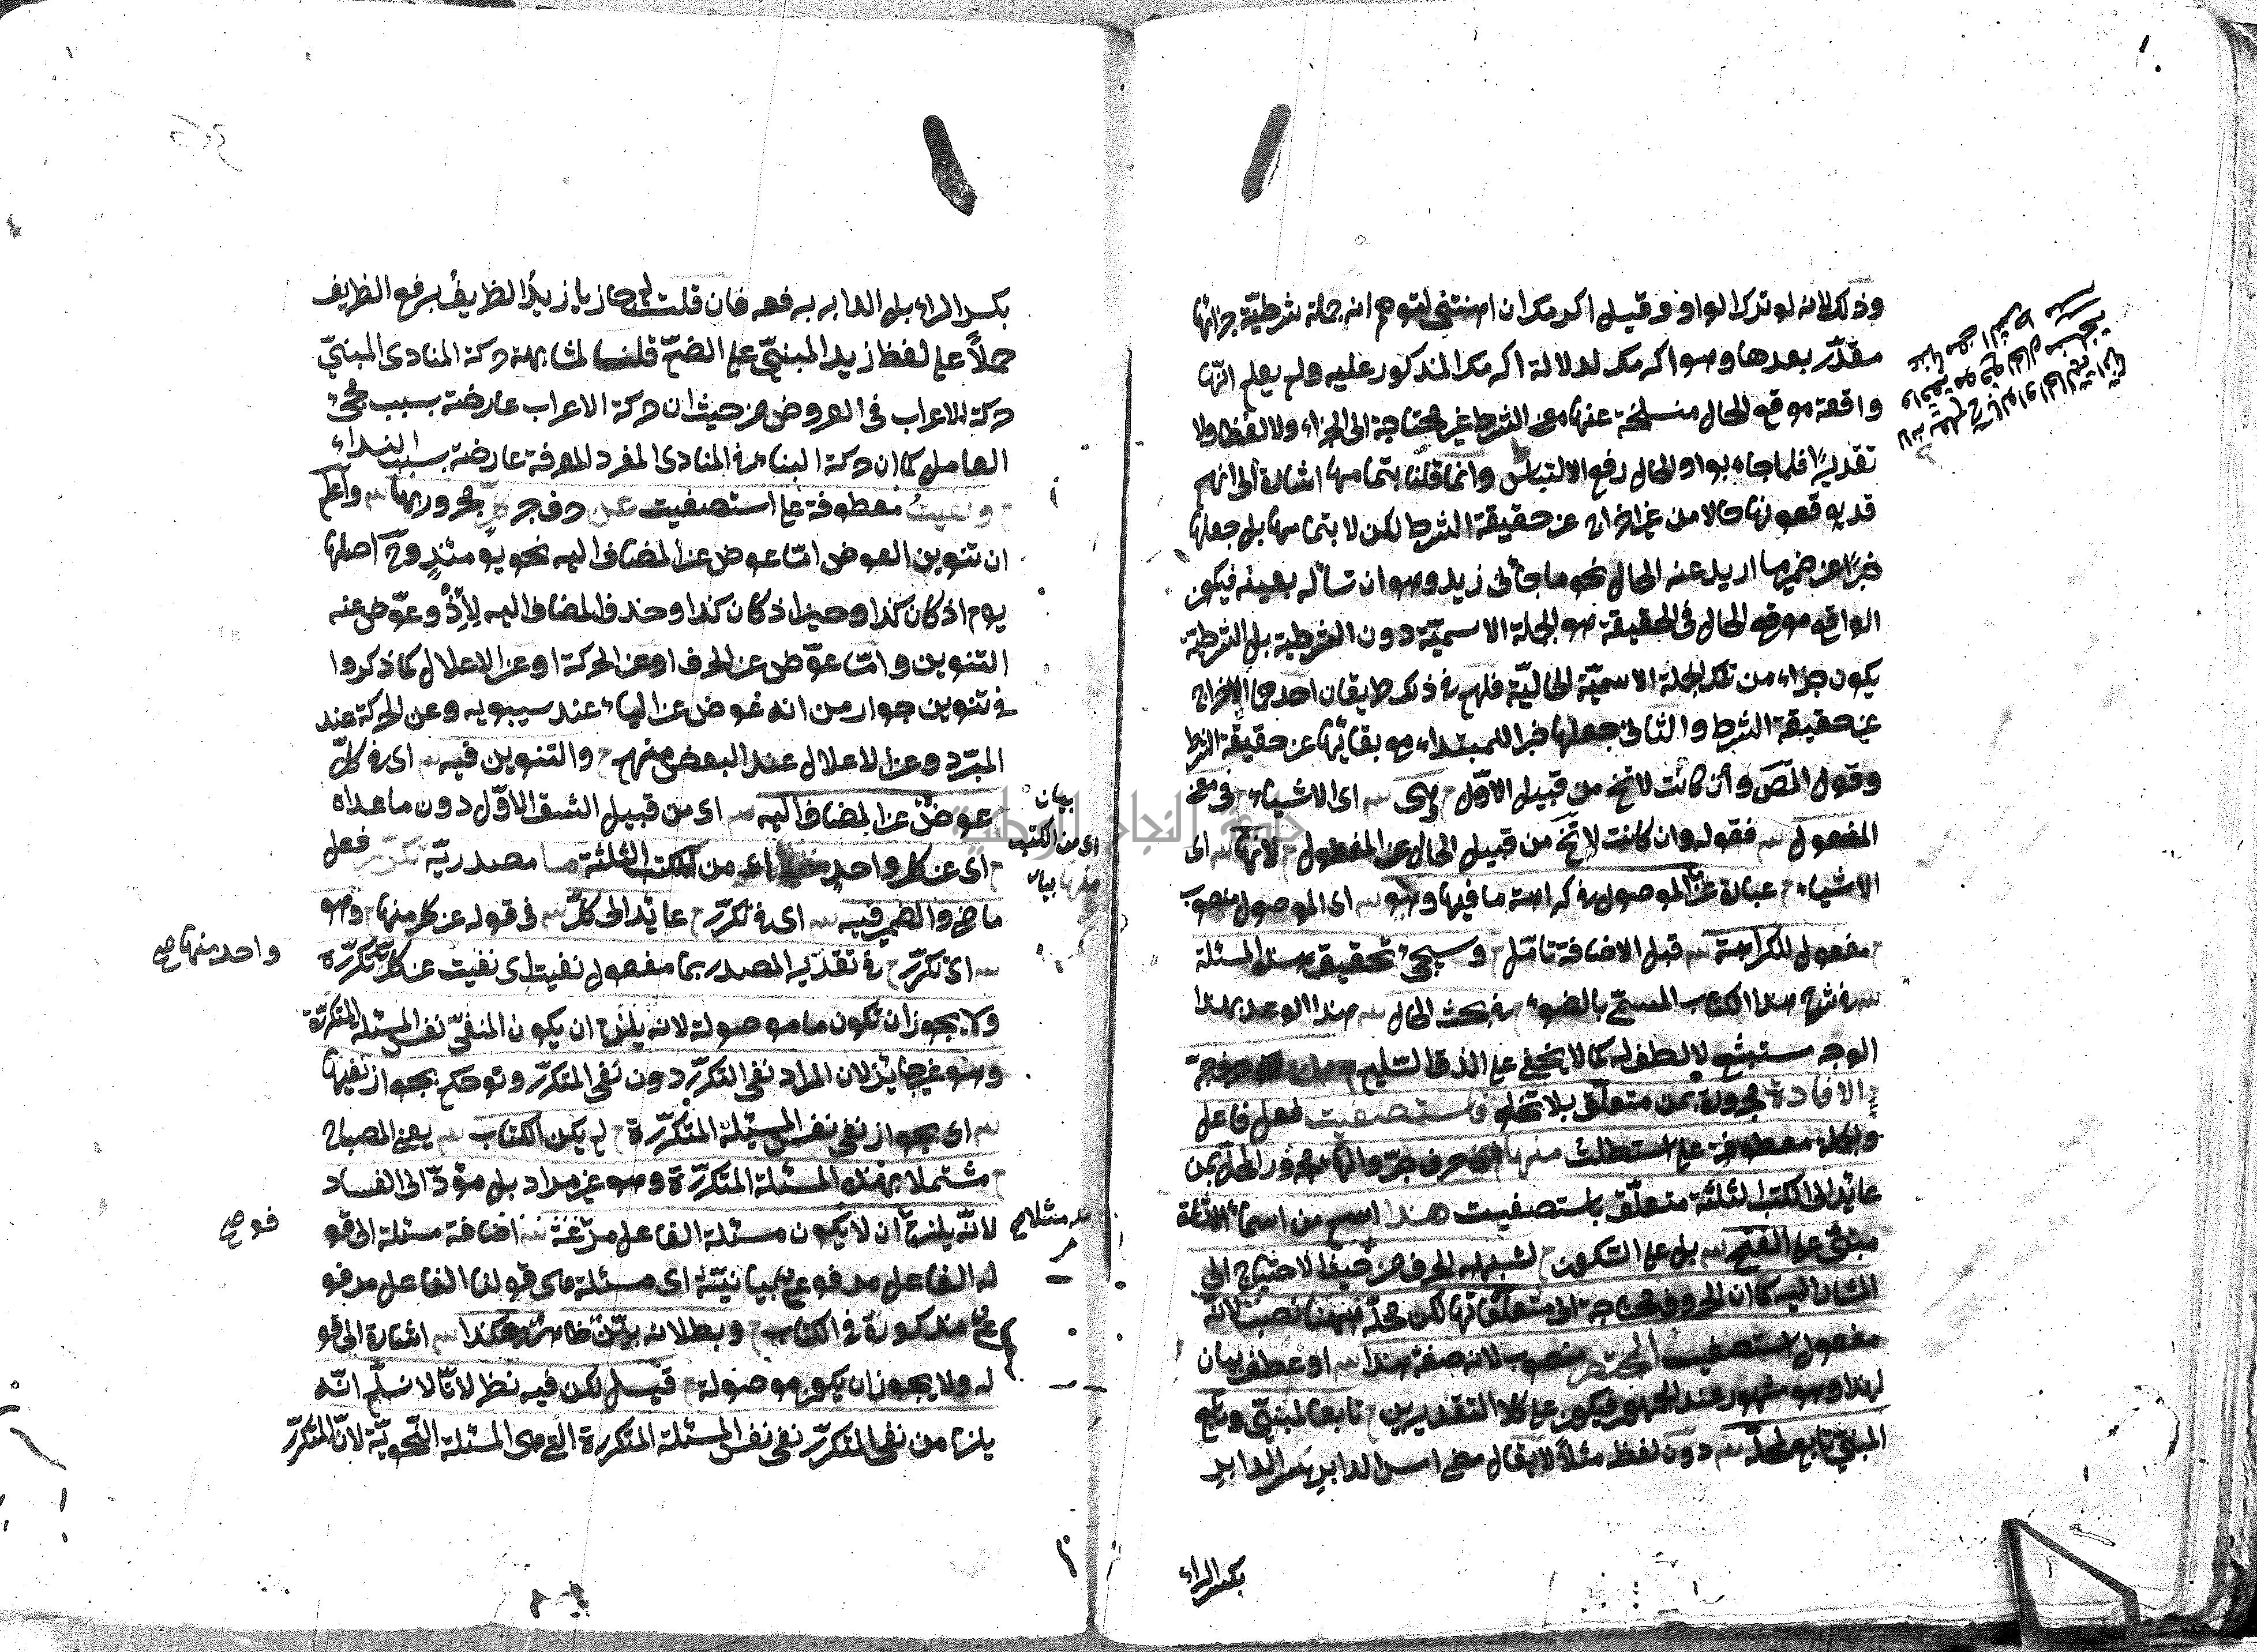 وذلك لانه لو ترك الواو وقيل اكرمك ان اهنتني لتوهم انه جملة شرطيّة جزائها
مقدّر بعدها وهو اكرمك لدلالة اكرمك المذكور عليه ولم يعلم انّها
واقعة موقع الحال منسلخة عنها معنى الشرط غير محتاجة الى الجزاء ولا لفظا ولا
تقديرًا فلما جاء بواو الحال رفع الالتباس وانما قلنا بتمامها اشارة الى انهم
قد يوقعونها حالا من غير اخراج عن حقيقة الشرط لكن لا بتمامها بل جعلها
خبرًا عن ضمير ما اريد عنه الحال نحو ما جائنى زيد وهو ان تسأله يعينه فيكون
الواقع موقع الحال فى الحقيقة هو الجملة الاسميّة دون الشرطية بل الشرطية
يكون جزاء من تلك الجملة الاسميّة الحاليّة فلهم فى ذلك طريقان احدهما الاخراج
عن حقيقة الشرط والثانى جعلها خبرا للمبتداء مع بقائها عن حقيقة الشرط
وقول المص وان كانت لا تخ من قبيل الاوّل وهى اى الاشياء فى معنى
المفعول فقوله وان كانت لا تخ من قبيل الحال عن المفعول لانها اى
الاشياء عبارة عن الموصول فى كراهة ما فيها وهو اى الموصول منصوب
مفعول للكراهة قبل الاضافة تامّل وسيجئ تحقيق هذه المسئلة
فى شرح هذا الكتاب المسمّى بالضوء فى بحث الحال هذا الوعد بهذا
الوجه مستبشع لا لطف له كما لا يخفى على الذوق السليم حرف جرّ
الافادة مجرورة بمن متعلّق بلا تخلو فاستصفيت فعل فاعل
والجملة معطوفة على استطلت منها من حرف جرّ والهاء مجرور المحلّ بمن
عايد الى الكتب الثلثة متعلّق باستصفيت هذا اسم من اسماء الاشارة
مبنىّ على الفتح بل على السكون لشبهه الحرف من حيث الاحتياج الى
المشار اليه كما ان الحروف محتاجة الى متعلّقاتها لكن محلّه ههنا نصب لانه
مفعول استصفيت المختصر منصوب لانه صفة هذا او عطف بيان
لهذا وهو مشهور عند الجمهور فيكون على كلا التقديرين تابعا لمبنىّ وتابع
المبنىّ تابع لمحلّه دون لفظه مثلاً لا يقال مضى امس الدابر بكسر الدابر
بكسر الراء
بكسر الراء بل الدابر برفعه فان قلت لم جاز يا زيدُ الظريفُ برفع الظريف
حملاً على لفظ زيد المبنىّ على الضمّ قلنا لمشابهة حركة المنادى المبنىّ
حركة الاعراب فى العروض من حيث ان حركة الاعراب عارضة بسبب مجئ
العامل كما ان حركة البناء فى المنادى المفرد المعرفة عارضة بسبب النداء
ونفيتُ معطوفة على استصفيت عن حرف جر كلٍّ مجرور بها واعلم
ان تنوين العوض امّا عوض عن المضاف اليه نحو يومئذٍ وح اصلها
يوم اذ كان كذا وحين اذ كان كذا وحذف المضاف اليه لاذ وعوّض عنه
التنوين وامّا عوّض عن الحرف او عن الحركة او عن الاعلال كما ذكروا
فى تنوين جوار من انه عوض عن الياء عند سيبويه وعن الحركة عند
المبّرد وعن الاعلال عند البعض منهم والتنوين فيه اى فى كلّ
عوضٌ عن المضاف اليه اى من قبيل الشق الاوّل دون ما عداه
اى عن كل واحد اى من الكتب الثلثة ما مصدريّة تكرّر فعل
ماض والضمير فيه اى فى تكرّر عايد الى كلّ فى قوله عن كل منها وهو
اى تكرّر فى تقدير المصدر بما مفعول نفيت اى نفيت عن كلّ تكرّره
ولا يجوز ان تكون ما موصولة لانه يلزم ان يكون المنفىّ نفس المسئلة المتكرّرة
وهو غير جايز لان المراد نفى التكرّر دون نفى المتكرّر ولو حكم بجواز نفيها
اى بجواز نفى نفس المسئلة المتكرّرة لم يكن الكتاب يعنى المصباح
مشتملا بهذه المسئلة المتكرّرة وهو غير مراد بل مؤدّ الى الفساد
لانّه يلزم ان لا يكون مسئلة الفاعل مرفوعة اضافة مسئلة الى قو
له الفاعل مرفوع بيانيّة اى مسئلة هى قولنا الفاعل مرفو
ع مذكورة فى الكتاب وبطلانه بيّن ظاهر وهكذا اشارة الى قو
له ولا يجوز ان يكون موصولة قيل لكن فيه نظر لانّا لا نسلّم انّه
يلزم من نفى المتكرّر نفى نفس المسئلة المتكررة التى هى المسئلة النّحويّة لانّ المتكرّر
بيان
اى من الكتب
واحد منها صح